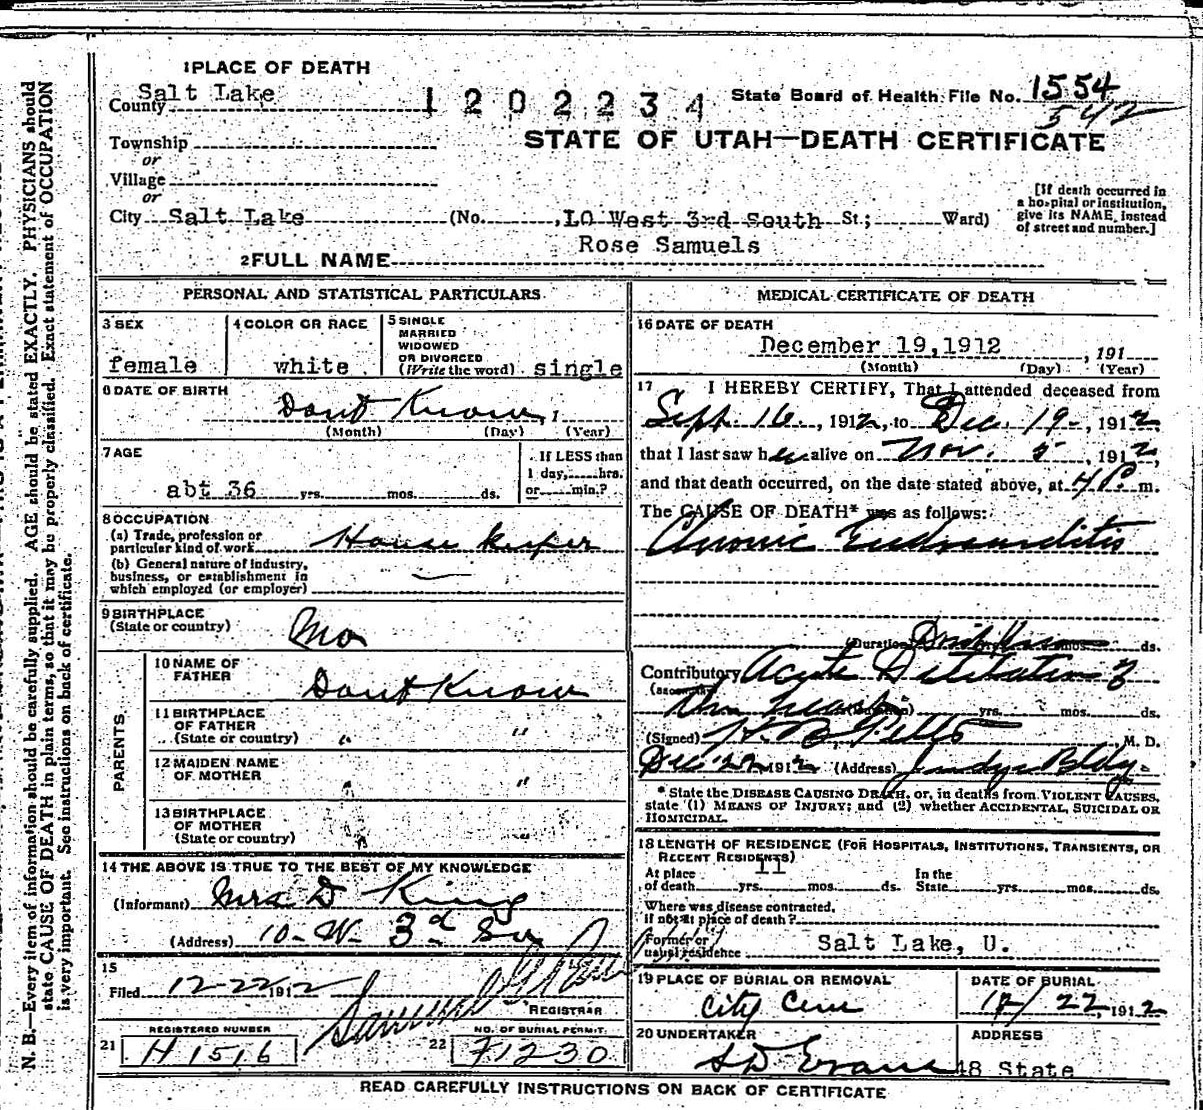 N. B.—Every item of information should be carefully supplied. AGE should be stated EXACTLY. PHYSICIANS should
state CAUSE OF DEATH in plain terms, so that it may be properly classified. Exact statement of OCCUPATION
is very important. See instructions on back of certificate.
1 PLACE OF DEATH
County Salt Lake
1202234
State Board of Health File No. 1554
542
STATE OF UTAH—DEATH CERTIFICATE
Township
or
Village
or
City Salt Lake (No. 10 West 3rd South St.; Ward)
[If death occurred in
a hospital or institution,
give its NAME, instead
of street and number.]
2 FULL NAME Rose Samuels
PERSONAL AND STATISTICAL PARTICULARS
3 SEX
female
4 COLOR OR RACE
white
5 SINGLE
MARRIED
WIDOWED
OR DIVORCED
(Write the word) single
6 DATE OF BIRTH
Dont Know, 1
(Month) (Day) (Year)
7 AGE
abt 36 yrs. mos. ds.
If LESS than
1 day, hrs.
or min.?
8 OCCUPATION
(a) Trade, profession or
particular kind of work House keeper
(b) General nature of industry,
business, or establishment in
which employed (or employer)
9 BIRTHPLACE
(State or country) Mo
PARENTS
10 NAME OF
FATHER Dont Know
11 BIRTHPLACE
OF FATHER
(State or country) " "
12 MAIDEN NAME
OF MOTHER " "
13 BIRTHPLACE
OF MOTHER
(State or country) " "
14 THE ABOVE IS TRUE TO THE BEST OF MY KNOWLEDGE
(Informant) Mrs D King
(Address) 10 - W. 3d So
15
Filed 12-22 1912
REGISTRAR
REGISTERED NUMBER
21 H1516
NO. OF BURIAL PERMIT.
22 71230
MEDICAL CERTIFICATE OF DEATH
16 DATE OF DEATH
December 19,1912, 191
(Month) (Day) (Year)
17 I HEREBY CERTIFY, That I attended deceased from
Sept. 16, 1912, to Dec. 19, 1912
that I last saw her alive on Nov. 5, 1912,
and that death occurred, on the date stated above, at 4 P. m.
The CAUSE OF DEATH* was as follows:
Chronic Endocarditis
(Duration) Dont Know mos. ds.
Contributory Acute Dilitation of
the heart yrs. mos. ds.
(Signed) M. D.
Dec 22 1912 (Address) Judge Bldg.
* State the DISEASE CAUSING DEATH, or, in deaths from VIOLENT CAUSES,
state (1) MEANS OF INJURY; and (2) whether ACCIDENTAL, SUICIDAL OR
HOMICIDAL.
18 LENGTH OF RESIDENCE (FOR HOSPITALS, INSTITUTIONS, TRANSIENTS, OR
RECENT RESIDENTS)
At place
of death 11 yrs. mos. ds. In the
State yrs. mos. ds.
Where was disease contracted,
if not at place of death?
Former or
usual residence Salt Lake, U.
19 PLACE OF BURIAL OR REMOVAL
City Cem
DATE OF BURIAL
12/22, 1912
20 UNDERTAKER
S D Evans
ADDRESS
48 State
READ CAREFULLY INSTRUCTIONS ON BACK OF CERTIFICATE